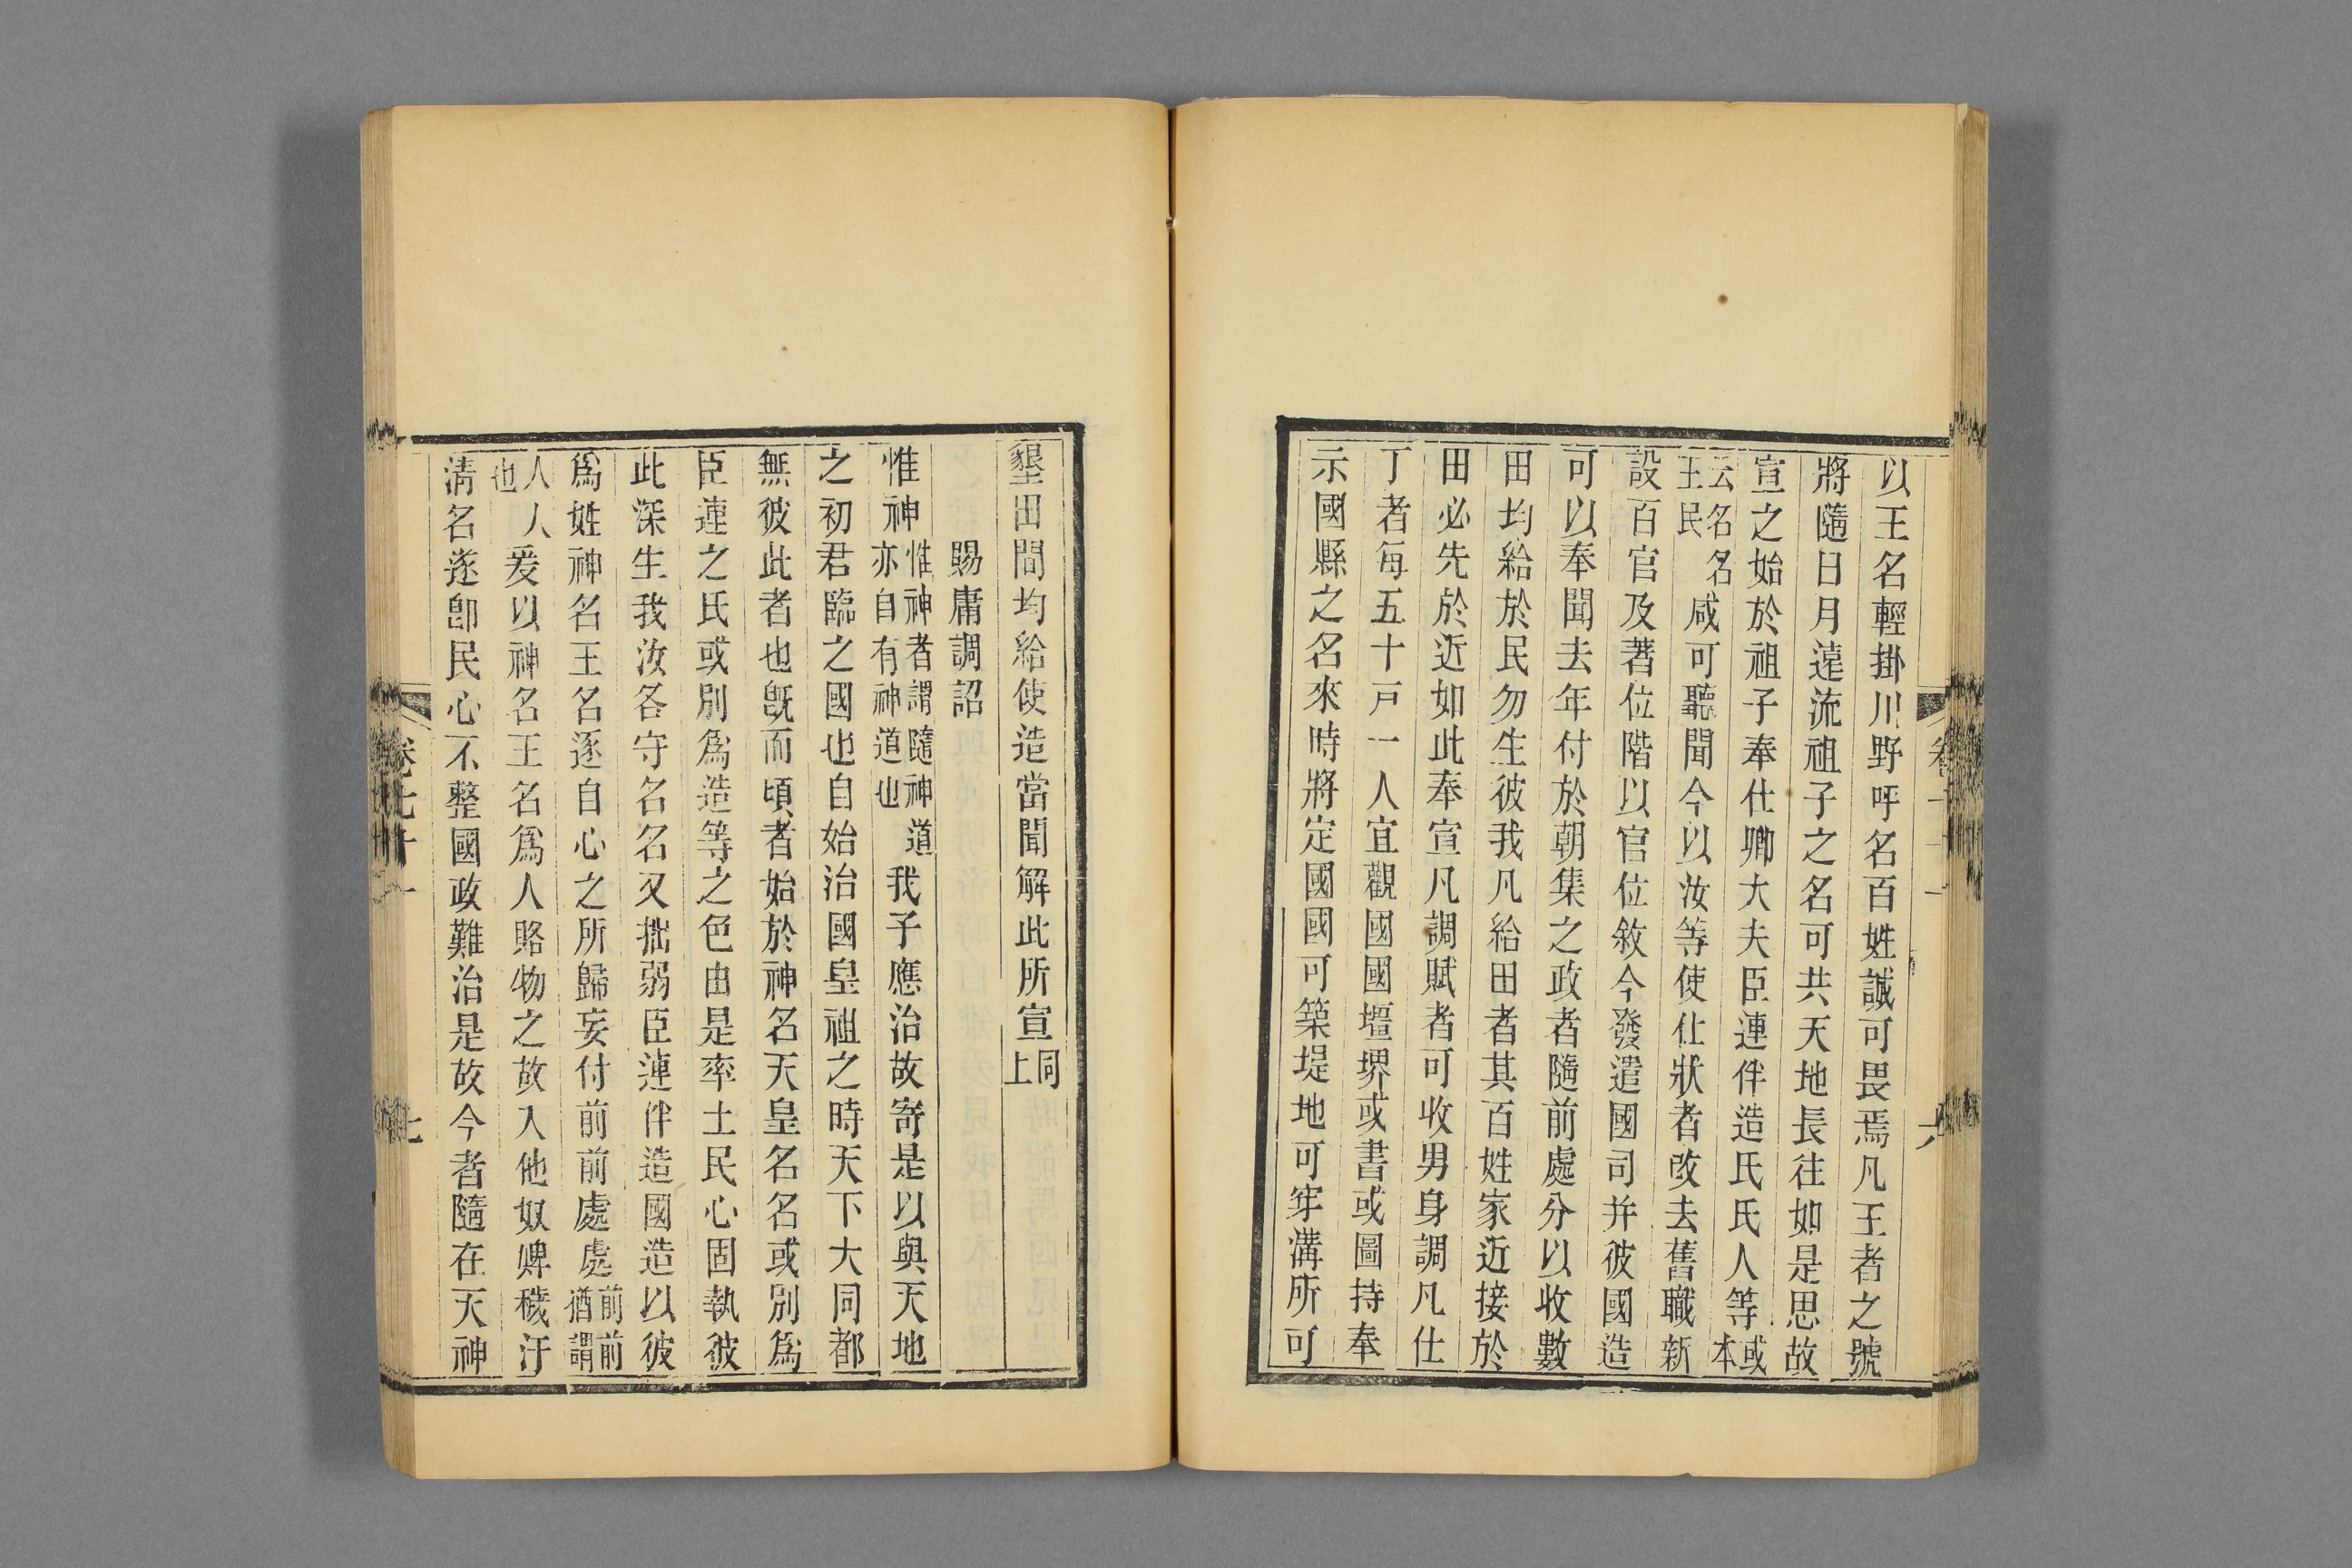 以王名輕掛川野呼名百姓誠可畏焉凡王者之號
將隨日月遠流祖子之名可共天地長往如是思故
宣之始於祖子奉仕卿大夫臣連伴造氏氏人等或本
云名名王民咸可聽聞今以汝等使仕狀者改去舊職新
設百官及著位階以官位敘今發遣國司并彼國造
可以奉聞去年付於朝集之政者隨前處分以收數
田均給於民勿生彼我凡給田者其百姓家近接於
田必先於近如此奉宣凡調賦者可收男身調凡仕
丁者每五十戸一人宜觀國國壃堺或書或圖持奉
示國縣之名來時將定國國可築堤地可穿溝所可
墾田間均給使造當聞解此所宣同上
賜庸調詔
惟神惟神者謂隨神道亦自有神道也我子應治故寄是以與天地
之初君臨之國也自始治國皇祖之時天下大同都
無彼此者也既而頃者始於神名天皇名名或別爲
臣連之氏或別爲造等之色由是率土民心固執彼
此深生我汝各守名名又拙弱臣連伴造國造以彼
爲姓神名王名逐自心之所歸妄付前前處處前前猶謂
人人也爰以神名王名爲人賂物之故入他奴婢穢汙
淸名遂卽民心不整國政難治是故今者隨在天神
卷七十一
七